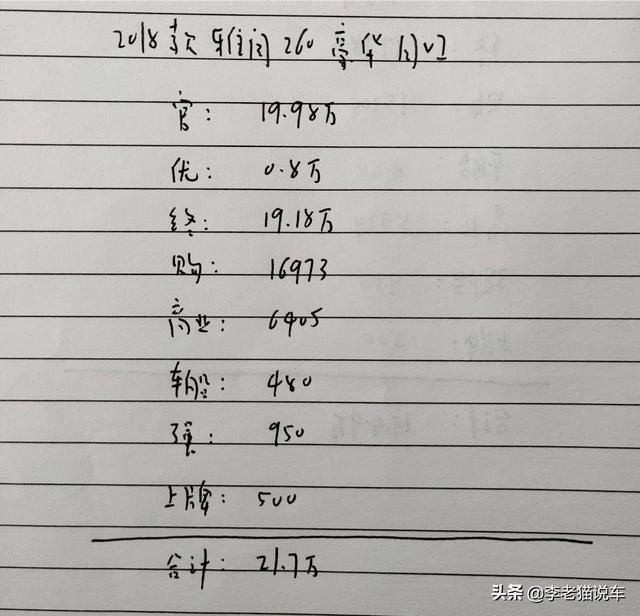 2018款 260 豪华
官: 19.98万
优: 0.8万
终: 19.18万
购: 16973
商业: 6405
车船: 480
强: 950
上牌: 500
合计: 21.7万
头条 @李老猫说车